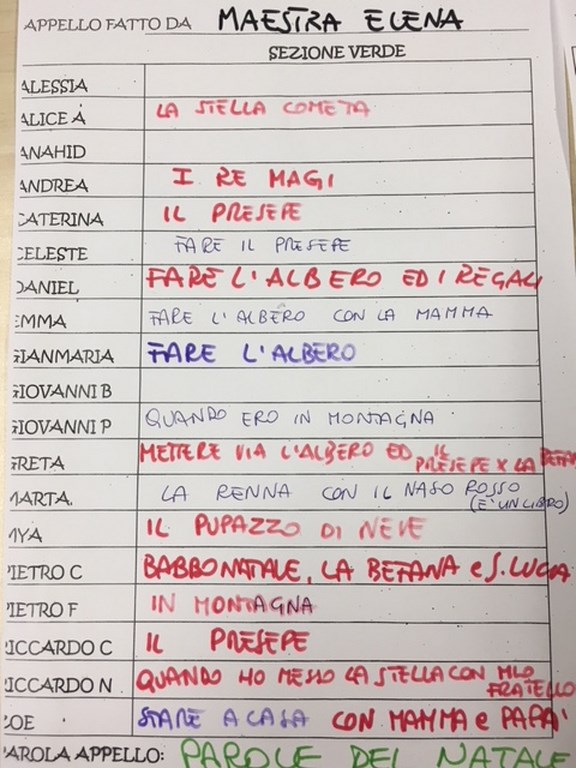 APPELLO FATTO DA MAESTRA ELENA
SEZIONE VERDE
ALESSIA
ALICE A LA STELLA COMETA
ANAHID
ANDREA I RE MAGI
CATERINA IL PRESEPE
CELESTE FARE IL PRESEPE
DANIEL FARE L'ALBERO ED I REGALI
EMMA FARE L'ALBERO CON LA MAMMA
GIANMARIA FARE L'ALBERO
GIOVANNI B
GIOVANNI P QUANDO ERO IN MONTAGNA
GRETA METTERE VIA L'ALBERO ED IL
PRESEPE X LA BEFANA
MARTA. LA RENNA CON IL NASO ROSSO
(E' UN LIBRO)
MYA IL PUPAZZO DI NEVE
PIETRO C BABBO NATALE, LA BEFANA e S. LUCIA
PIETRO F IN MONTAGNA
RICCARDO C IL PRESEPE
RICCARDO N QUANDO HO MESSO LA STELLA CON MIO
FRATELLO
ZOE STARE A CASA CON MAMMA e PAPA'
PAROLA APPELLO: PAROLE DEL NATALE